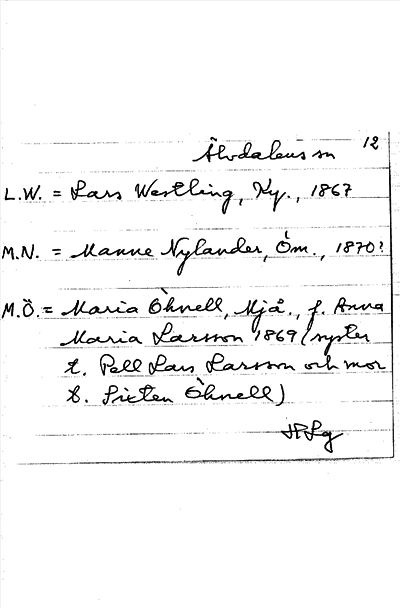 12
Älvdalens sn
L.W. = Lars Westling, Ky., 1867
M.N. = Manne Nylander, Öm., 1870?
M.Ö. = Maria Öhnell, Mjå., f. Anna
Maria Larsson 1869 (syster
t. Pell Lars Larsson och mor
t. Sixten Öhnell)